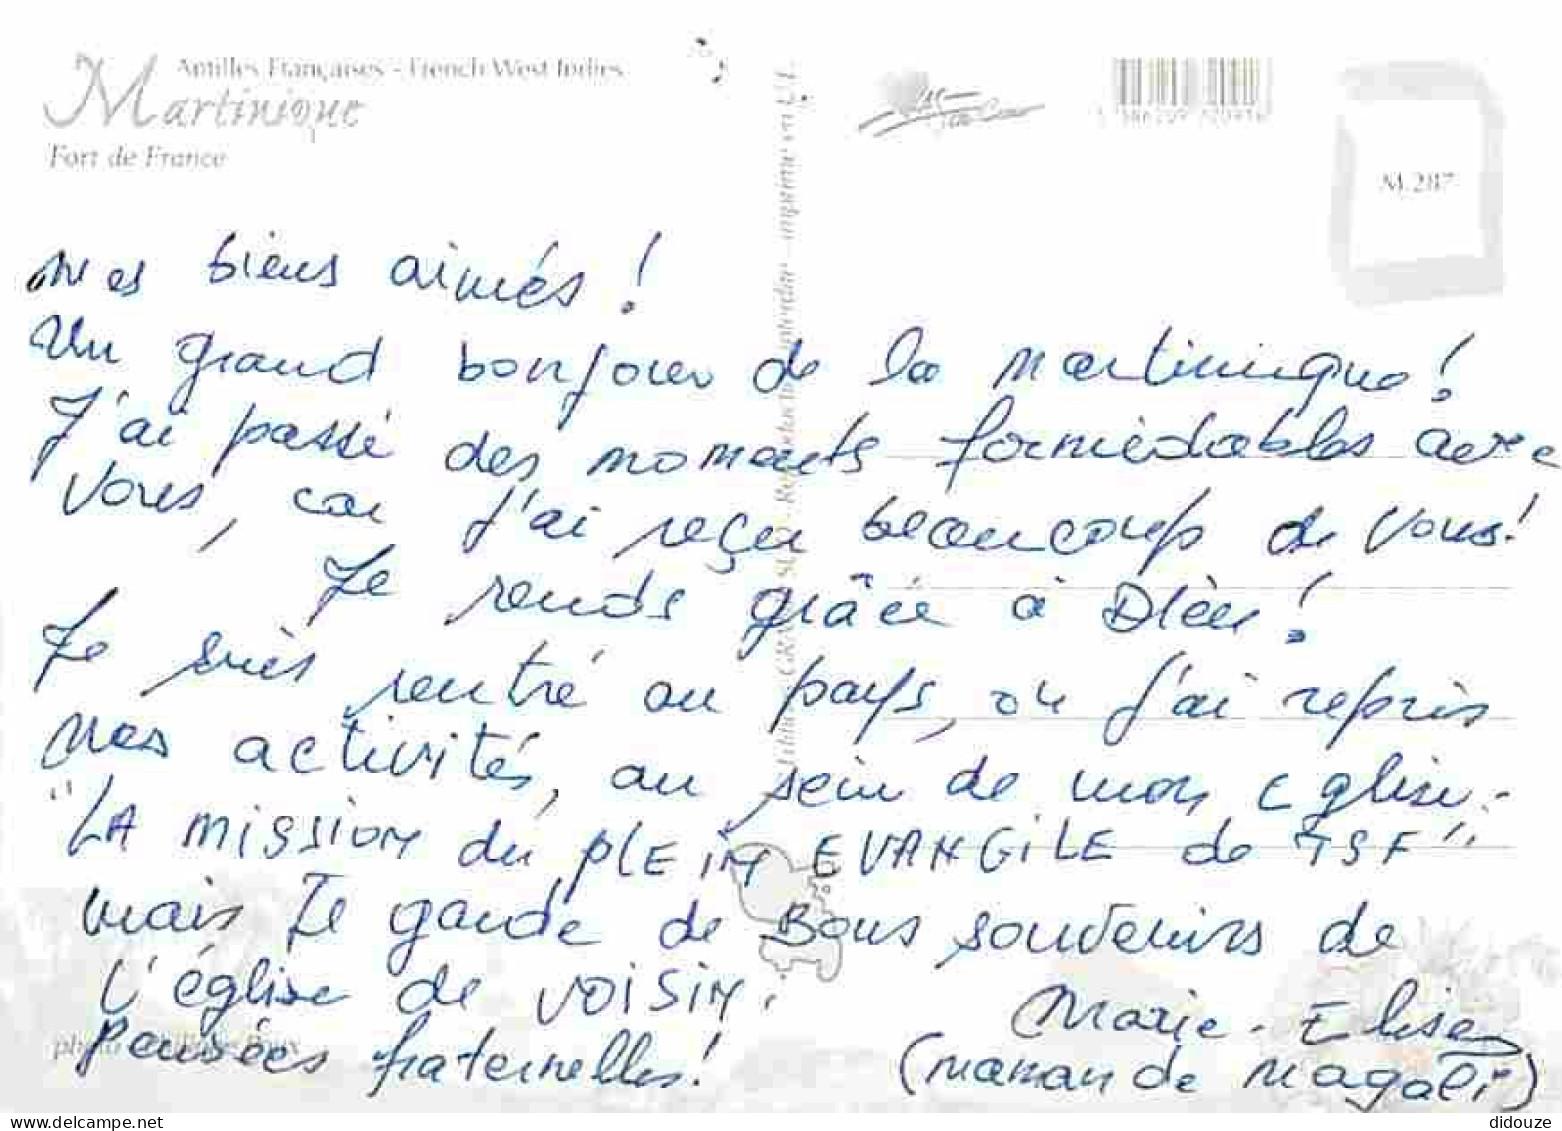 Antilles Françaises - French West Indies
Martinique
Fort de France
M.287
mes biens aimés !
Un grand bonjour de la martinique !
J'ai passé des moments formidables avec
vous, car j'ai reçu beaucoup de vous !
Je rends grâce à Dieu !
Je suis rentré au pays, ou j'ai repris
mes activités, au sein de mon Eglise.
"LA MISSION du PLEIN EVANGILE de TSF"
mais Je garde de Bons souvenirs de
l'église de VOISIN.
Pensées fraternelles !
Marie-Elise
(maman de Magali)
photo
delcampe.net
didouze